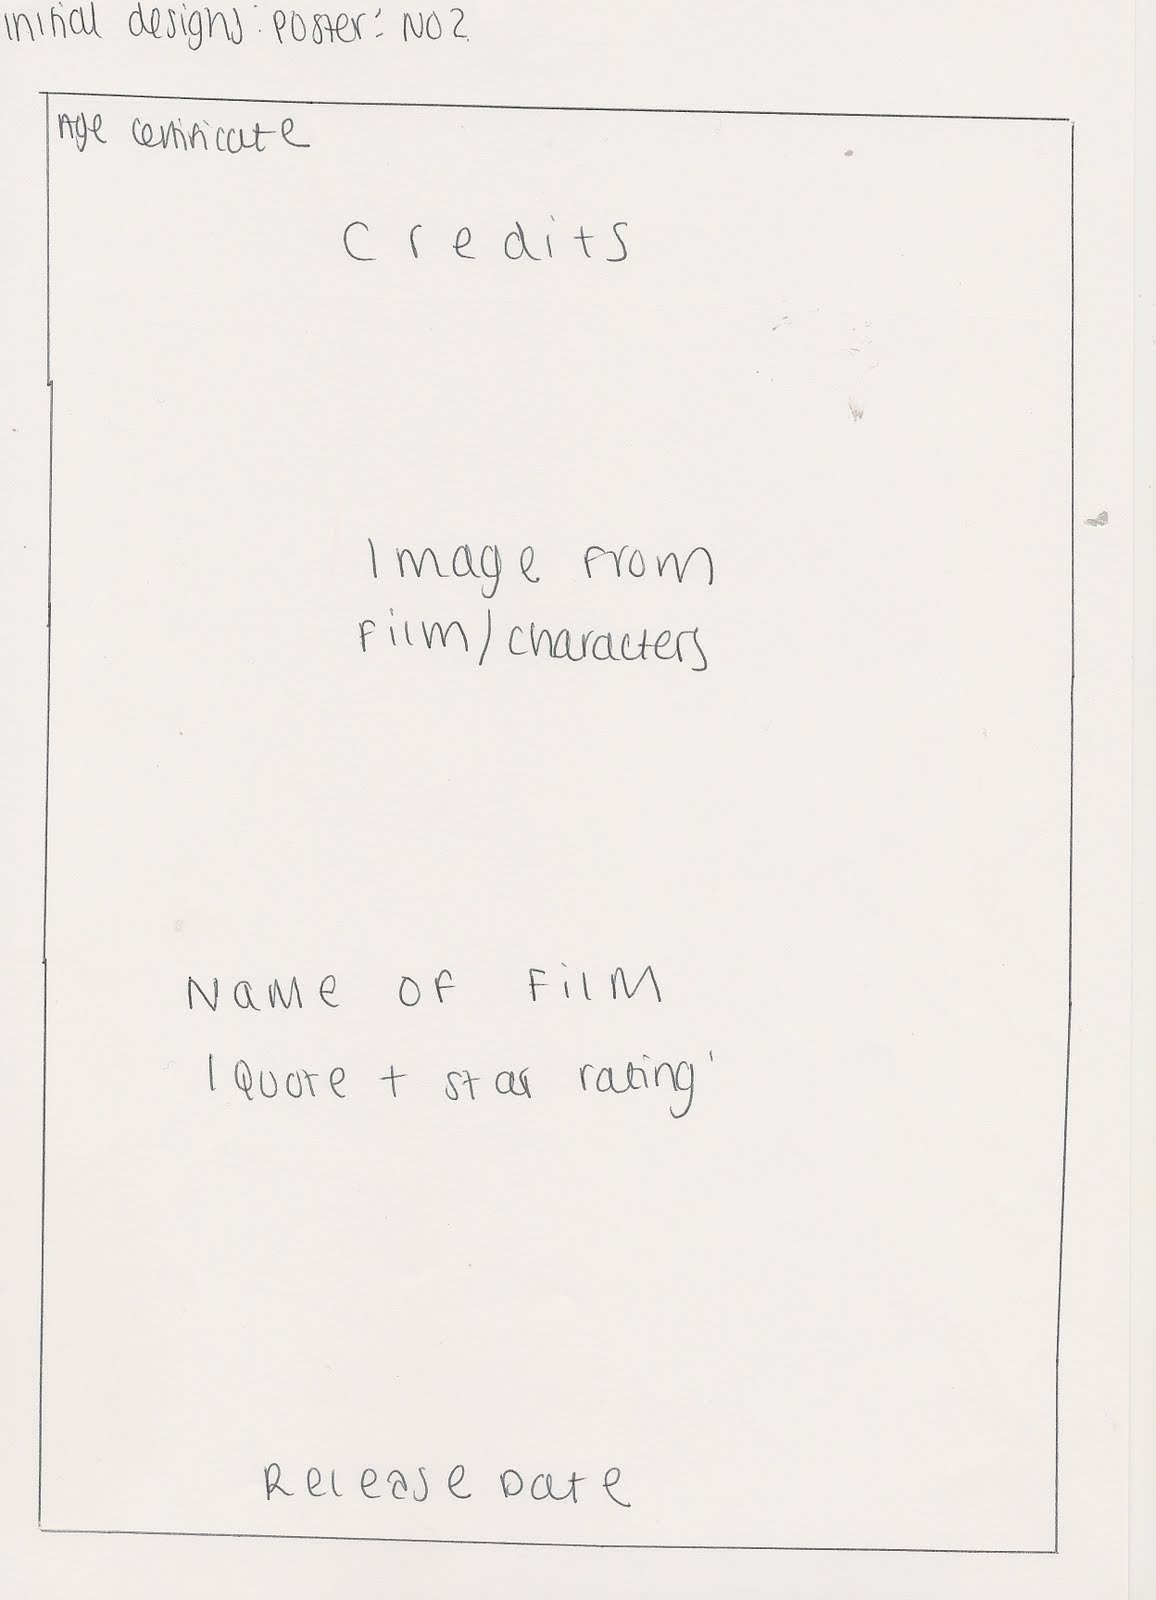 initial designs: poster: NO2.
Age certificate
Credits
Image from
film/characters
Name of Film
'Quote + star rating'
Release Date